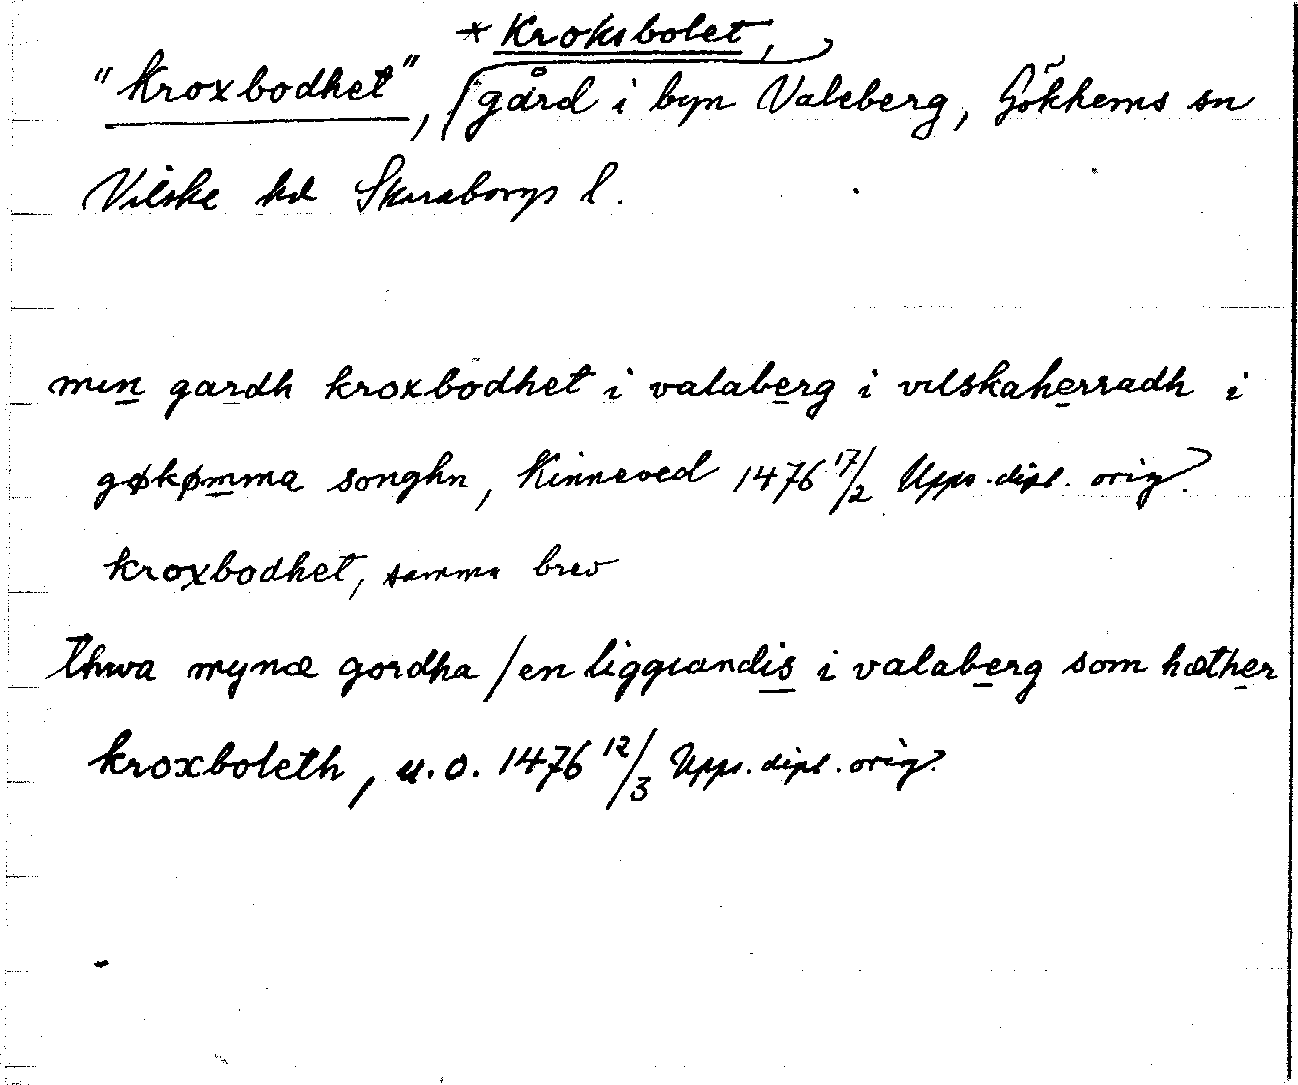 * Kroksbolet,
"Kroxbodhet", gård i byn Valeberg, Gökhems sn
Vilske hd Skaraborgs l.
min gardh kroxbodhet i valaberg i vilskaherradh i
gøkømma songhn, Kinneved 1476 17/2 Upps. dipl. orig.
kroxbodhet, samma brev
thwa mynæ gordha / en liggiandis i valaberg som hæther
kroxboleth, u.o. 1476 12/3 Upps. dipl. orig.